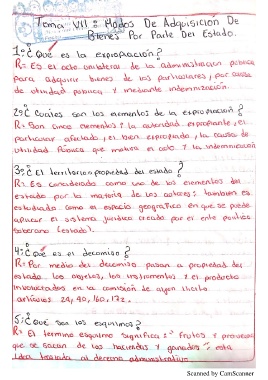 Tema VII: Modos De Adquisicion De
Bienes Por Parte Del Estado.
1:¿Que es la expropiación?
R= Es el acto unilateral de la administracion publica
para adquirir bienes de los particulares, por causa
de utilidad publica y mediante indemnización.
2:¿Cuales son los elementos de la expropiación?
R= Son cinco elementos: la autoridad expropiante, el
particular afectado, el bien expropiado, la causa de
utilidad Pública que motiva el acto y la indemnización
3:¿El territorio es propiedad del estado?
R= Es considerado como uno de los elementos del
estado por la materia de los autores: tambien es
estudiado como es espacio geografico en que se puede
aplicar el sistema juridico creado por el ente politico
soberano (estado).
4:¿Que es el decomiso?
R= Por medio del decomiso pasan a propiedad del
estado los objetos, los instrumentos y el producto
involucrados en la comisión de algun ilicito
artículos 24, 40, 160, 172.
5:¿Que son los esquilmos?
R= El termino esquilmo significa: "frutos y provechos
que se sacan de las haciendas y ganados" esta
idea trasladada al derecho administrativo
Scanned by CamScanner